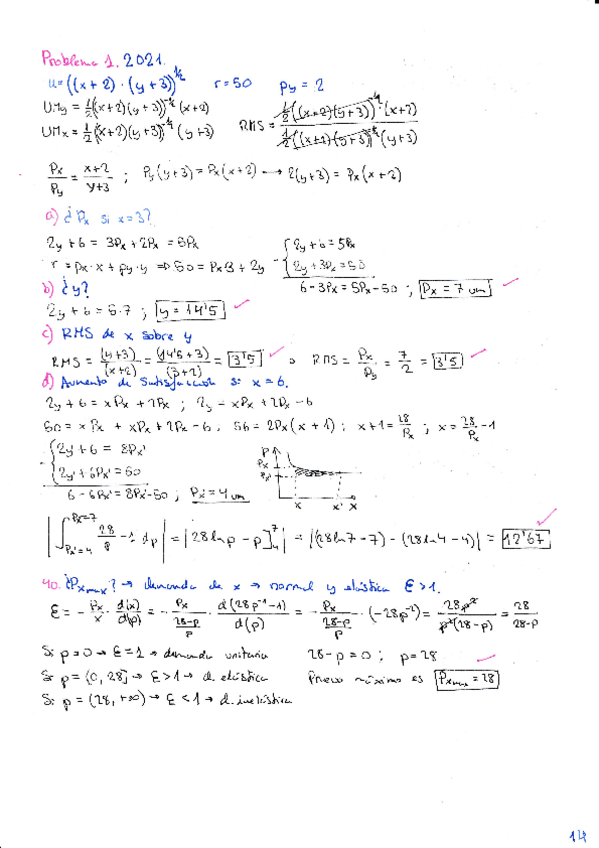 Problema 1. 2021.
u = ((x + 2) · (y + 3))^½   r = 50   py = 2
UMy = ½((x+2)(y+3))^-½ (x+2)
UMx = ½((x+2)(y+3))^-½ (y+3)
RMS = ½((x+2)(y+3))^-½ · (x+2) / ½((x+2)(y+3))^-½ (y+3)
Px/Py = x+2/y+3 ; Py(y+3) = Px(x+2) → 2(y+3) = Px(x+2)
a) ¿Px si x=3?
2y + 6 = 3Px + 2Px = 5Px
r = px·x + py·y ⇒ 50 = Px3 + 2y
- { 2y + 6 = 5Px
2y + 3Px = 50
6 - 3Px = 5Px - 50 ; Px = 7 um
b) ¿y?
2y + 6 = 5·7 ; y = 14'5
c) RMS de x sobre y
RMS = (y+3)/(x+2) = (14'5+3)/(3+2) = 3'5 o RMS = Px/Py = 7/2 = 3'5
d) Aumento de satisfacción si x = 6.
2y + 6 = xPx + 2Px ; 2y = xPx + 2Px - 6
50 = xPx + xPx + 2Px - 6 ; 56 = 2Px(x + 1) ; x + 1 = 28/Px ; x = 28/Px - 1
- { 2y' + 6 = 8Px'
2y' + 6Px' = 50
6 - 6Px' = 8Px' - 50 ; Px' = 4 um
P
Px
Px'
x x' X
| ∫ Px'=4 Px=7 28/p - 1 dp | = | 28 ln p - p ]₄⁷ | = |(28 ln 7 - 7) - (28 ln 4 - 4)| = 12'67
40. ¿Pxmax? → demanda de x → normal y elástica ε > 1.
ε = - Px/x · d(x)/d(p) = - Px/(28-p/p) · d(28p⁻¹-1)/d(p) = - Px/(28-p/p) · (-28p⁻²) = 28p²/p²(28-p) = 28/28-p
Si p = 0 → ε = 1 → demanda unitaria   28 - p = 0 ; p = 28
Si p = (0, 28] → ε > 1 → d. elástica   Precio máximo es Pxmax = 28
Si p = (28, +∞) → ε < 1 → d. inelástica
14